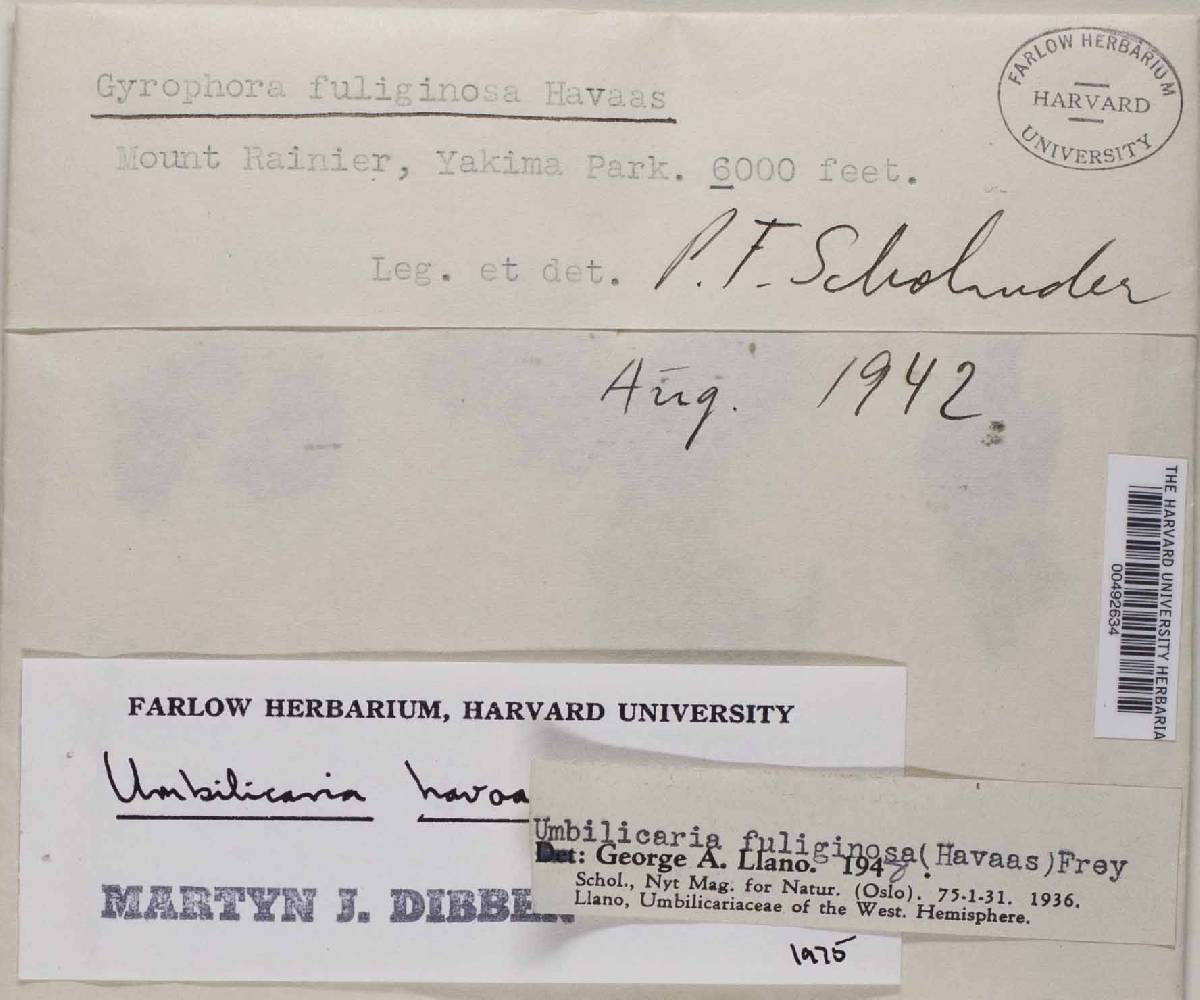 Gyrophora fuliginosa Havaas
FARLOW HERBARIUM
HARVARD
UNIVERSITY
Mount Rainier, Yakima Park. 6000 feet.
Leg. et det. P. F. Scholander
Aug. 1942.
THE HARVARD UNIVERSITY HERBARIA
00492634
FARLOW HERBARIUM, HARVARD UNIVERSITY
Umbilicaria havaa
MARTYN J. DIBBEN
1975
Umbilicaria fuliginosa(Havaas)Frey
Det: George A. Llano. 1948.
Schol., Nyt Mag. for Natur. (Oslo). 75-1-31. 1936.
Llano, Umbilicariaceae of the West. Hemisphere.